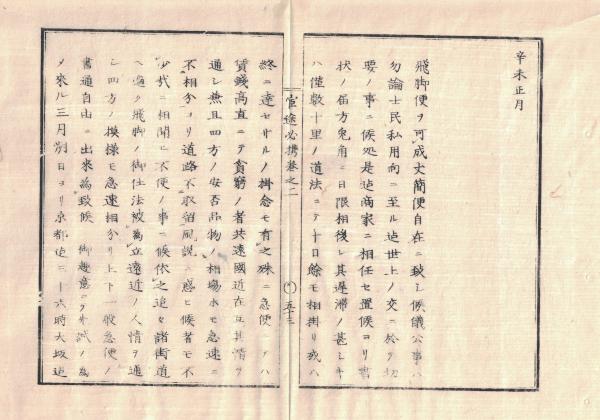 辛未正月
飛脚便ヲ可成丈簡便自在ニ致シ候儀公事ハ
勿論士民私用向ニ至ル迠世上ノ交ニ於テ切
要ノ事ニ候処是迠商家ニ相任セ置候ヨリ書
状ノ届方兎角ニ日限相後レ其遅滞ノ甚シキ
ハ僅数十里ノ道法ニテ十日餘モ相掛リ或ハ
官途必携巻之二
五十三
終ニ達セサルノ掛念モ有之殊ニ急便ノテハ
賃錢高直ニテ貧窮ノ者共遠國近在互其情ヲ
通シ兼且四方ノ安否品物ノ相場ホモ急速ニ
不相分ヨリ道路不取留風説ニ惑ヒ候者モ不
少哉ニ相聞ヒ不便ノ事ニ候依之追々諸街道
ヘ遍ク飛脚ノ御仕法被為立遠近ノ人情ヲ通
シ四方ノ模様モ急速相分リ上下一般急便ノ
書通自由ニ出來為致候御趣意ニテ先試ノ為
メ來ル三月朔日ヨリ京都迠三十六時大坂迠